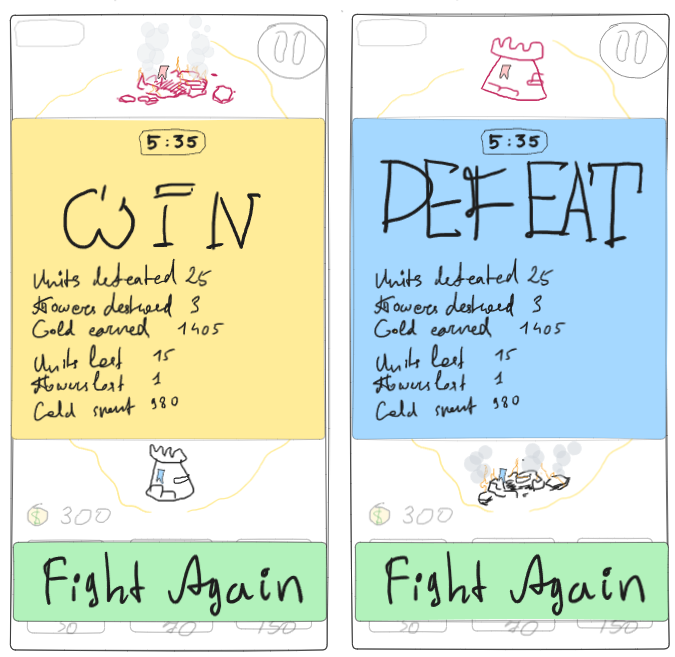 5:35
WIN
Units defeated 25
Towers destroyed 3
Gold earned 1405
Units lost 15
Towers lost 1
Gold spent 980
300
Fight Again
70
150
5:35
DEFEAT
Units defeated 25
Towers destroyed 3
Gold earned 1405
Units lost 15
Towers lost 1
Gold spent 980
300
Fight Again
70
150